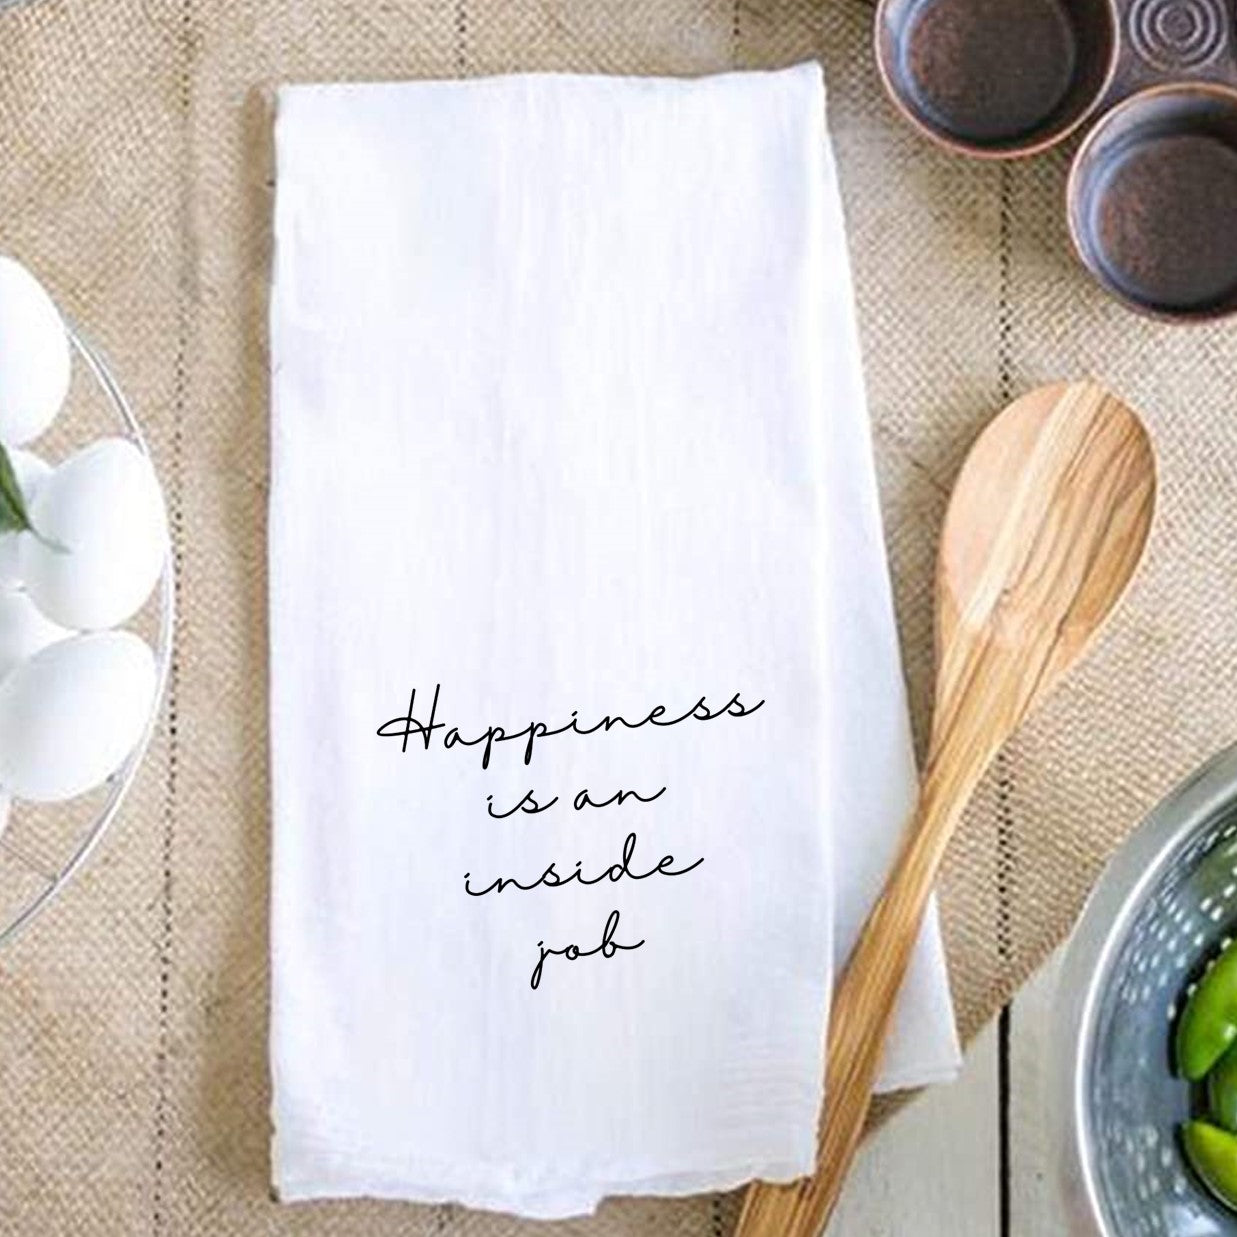 Happiness
is an
inside
job